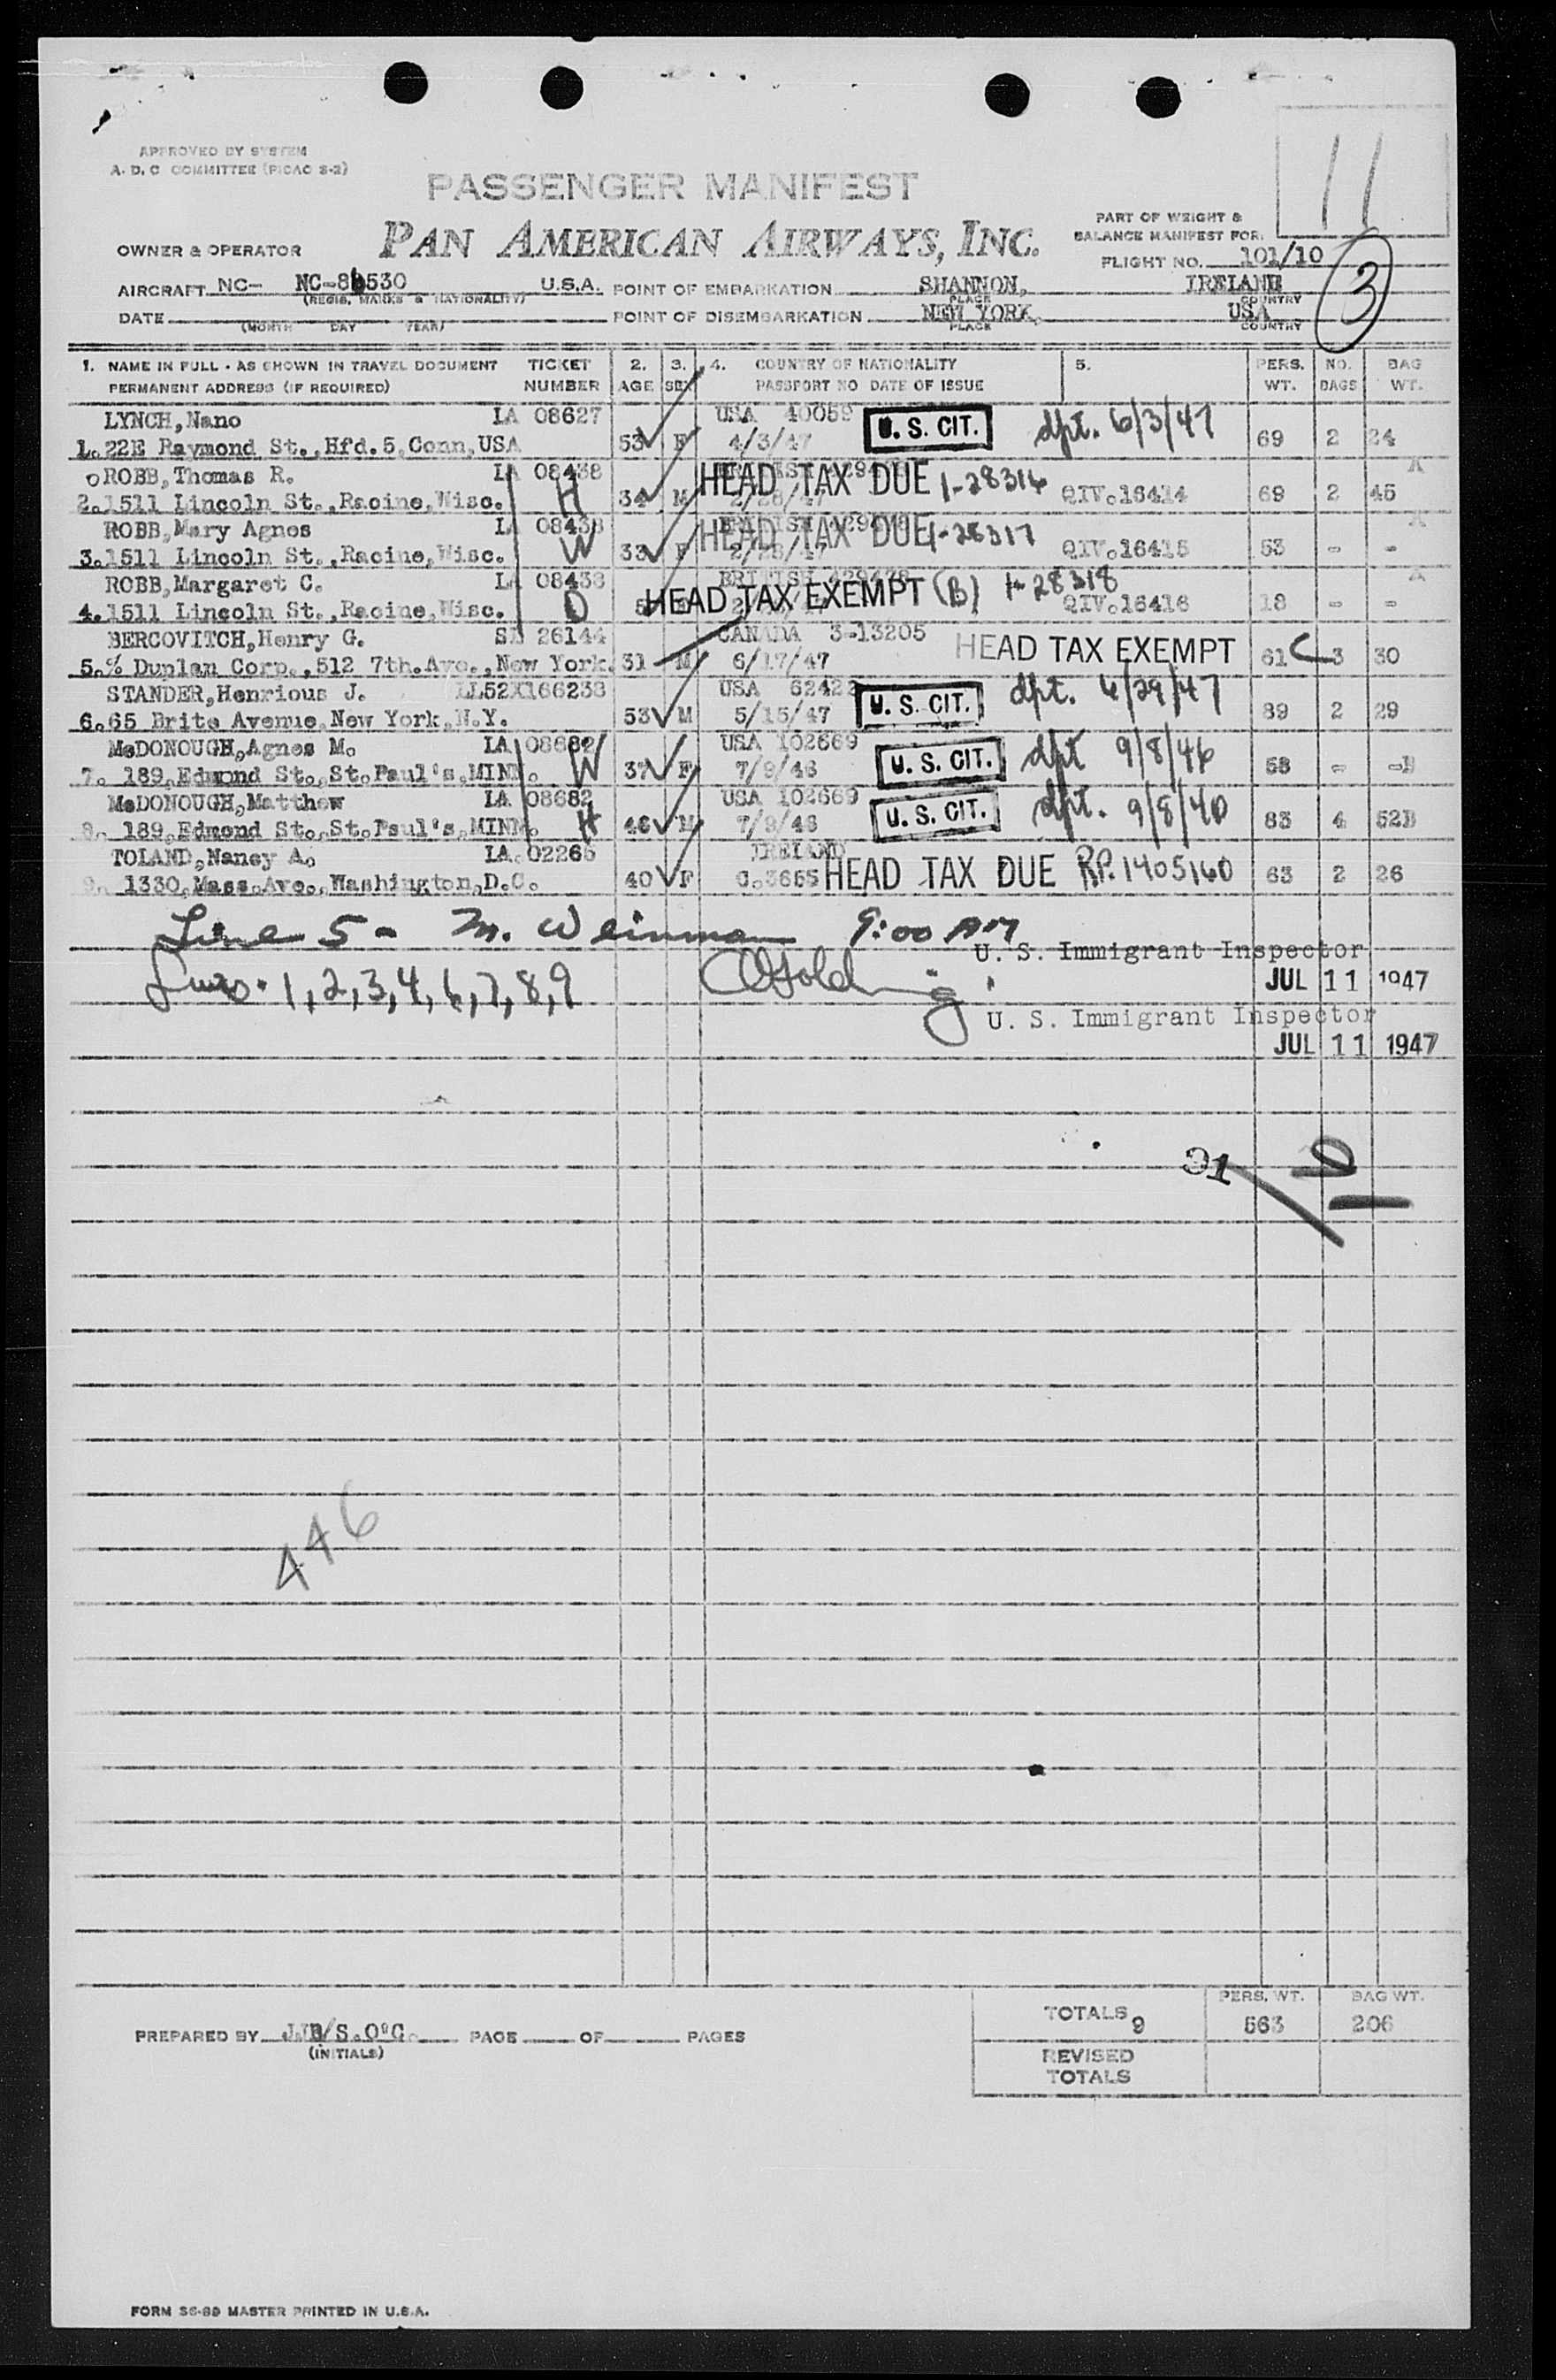 11
APPROVED BY SYSTEM
A. D. C COMMITTEE (PICAO S-2)
PASSENGER MANIFEST
PAN AMERICAN AIRWAYS, INC.
OWNER & OPERATOR
PART OF WEIGHT &
BALANCE MANIFEST FOR:
FLIGHT NO. 101/10
3
AIRCRAFT NC- NC-86530 U.S.A. POINT OF EMBARKATION SHANNON, IRELAND
(REGIS. MARKS & NATIONALITY) PLACE COUNTRY
DATE POINT OF DISEMBARKATION NEW YORK, USA
(MONTH DAY YEAR) PLACE COUNTRY
1. NAME IN FULL - AS SHOWN IN TRAVEL DOCUMENT TICKET 2. 3. 4. COUNTRY OF NATIONALITY 5. PERS. NO. BAG
PERMANENT ADDRESS (IF REQUIRED) NUMBER AGE SEX PASSPORT NO DATE OF ISSUE WT. BAGS WT.
LYNCH, Nano LA 08627 USA 40059 U. S. CIT. dpt. 6/3/47
1. 22E Raymond St., Hfd. 5, Conn, USA 53 F 4/3/47 69 2 24
ROBB, Thomas R. LA 08438 HEAD TAX DUE 1-28316 A
2. 1511 Lincoln St., Racine, Wisc. H 34 M QIV. 16414 69 2 45
ROBB, Mary Agnes LA 08438 HEAD TAX DUE 1-28317 A
3. 1511 Lincoln St., Racine, Wisc. W 33 F QIV. 16415 53 - -
ROBB, Margaret C. LA 08438 BRITISH HEAD TAX EXEMPT (B) 1-28318 A
4. 1511 Lincoln St., Racine, Wisc. D QIV. 16416 18 - -
BERCOVITCH, Henry G. 26144 CANADA 3-13205 HEAD TAX EXEMPT C
5. % Duplan Corp., 512 7th. Ave., New York. 31 M 6/17/47 61 3 30
STANDER, Henrious J. USA 62422 U. S. CIT. dpt. 4/29/47
6. 65 Brite Avenue, New York, N.Y. 53 M 5/15/47 89 2 29
McDONOUGH, Agnes M. LA 08682 W USA 102669 U. S. CIT. dpt 9/8/46
7. 189, Edmond St., St. Paul's, MINN. 37 F 7/9/46 58 - -B
McDONOUGH, Matthew LA 08682 H USA 102669 U. S. CIT. dpt. 9/8/46
8. 189, Edmond St., St. Paul's, MINN. 46 M 7/9/46 83 4 52B
TOLAND, Nancy A. LA. 02265 IRELAND HEAD TAX DUE RP. 1405160
9. 1330, Mass. Ave., Washington, D.C. 40 F C. 3655 63 2 26
Line 5 - M. Weinman 9:00 AM
U. S. Immigrant Inspector
Lines 1, 2, 3, 4, 6, 7, 8, 9
JUL 11 1947
U. S. Immigrant Inspector
JUL 11 1947
446
TOTALS 9 PERS. WT. 563 BAG WT. 206
PREPARED BY PAGE OF PAGES
(INITIALS)
REVISED
TOTALS
FORM 36-89 MASTER PRINTED IN U.S.A.